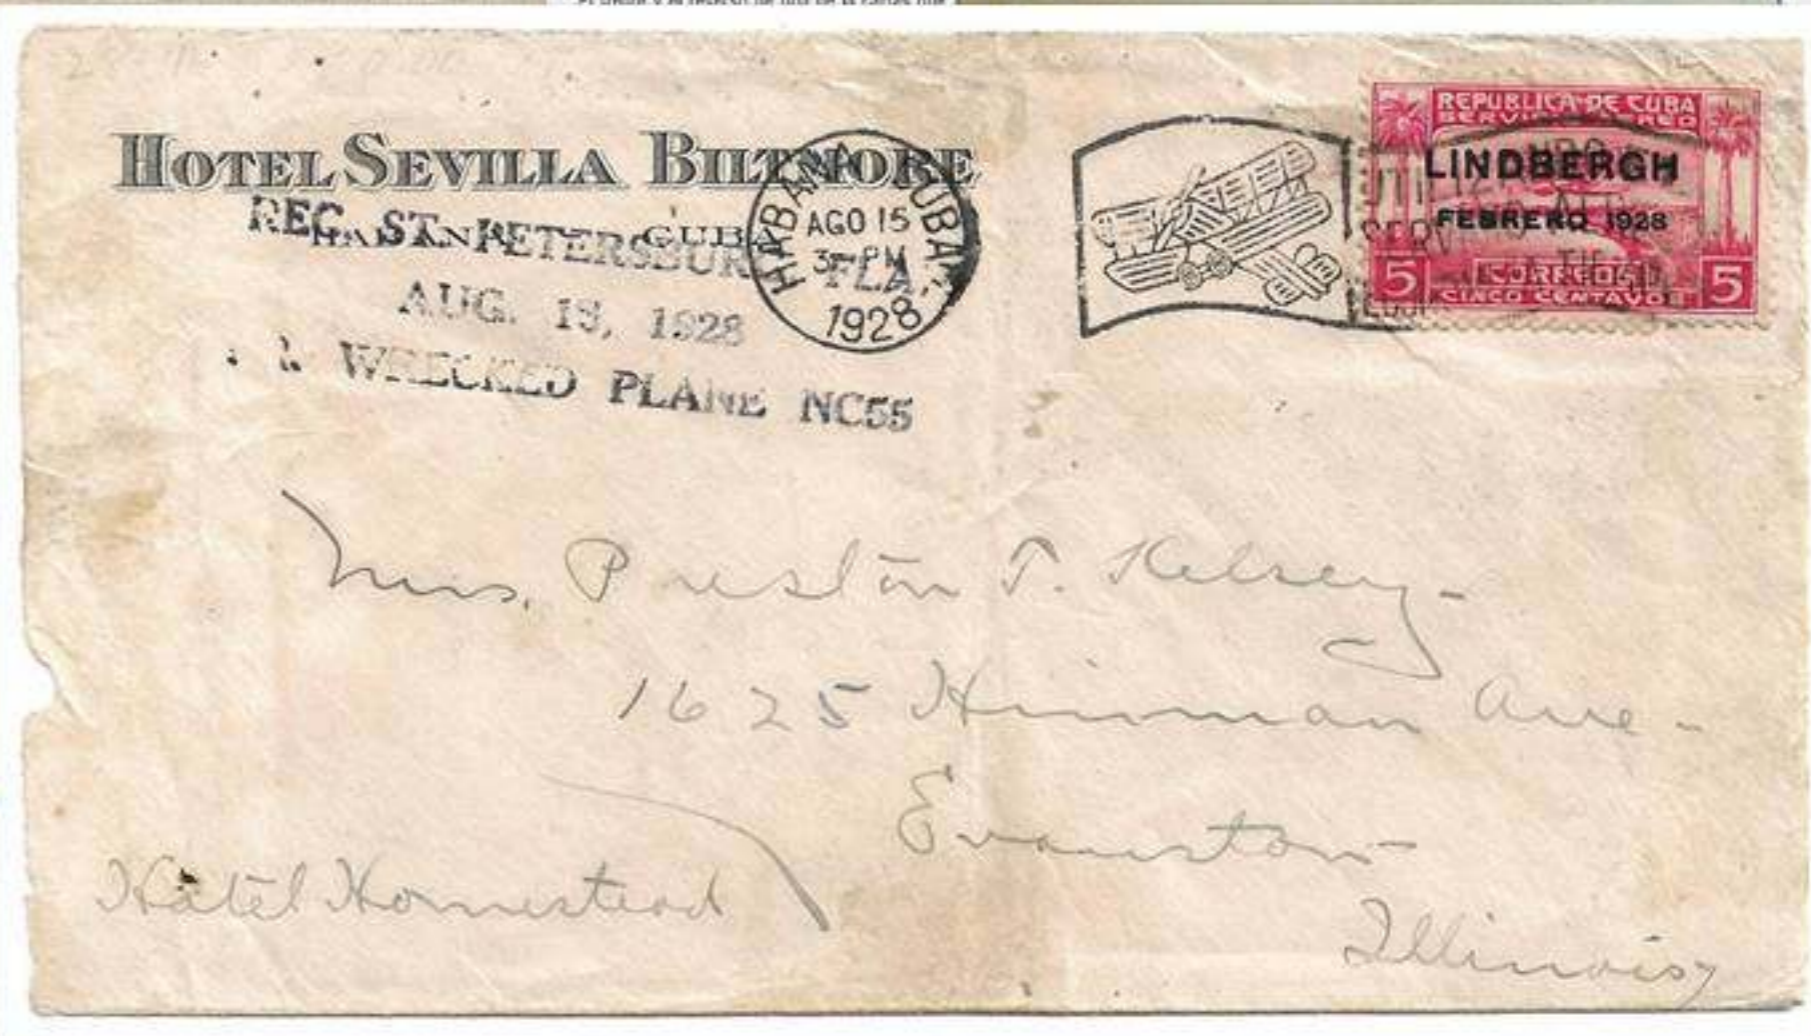 HOTEL SEVILLA BILTMORE
HAVANA CUBA
REC. ST. PETERSBURG FLA.
AUG. 18, 1928
WRECKED PLANE NC55
HABANA CUBA
AGO 15
3 PM
1928
REPUBLICA DE CUBA
SERVICIO AEREO
LINDBERGH
FEBRERO 1928
5 CORREOS 5
CINCO CENTAVOS
Mrs. Preston T. Kelsey-
1625 Hinman Ave-
Evanston
Illinois
Hotel Homestead